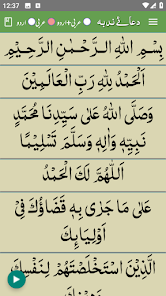 12:37
دعائے ندبہ
عربی+اردو
عربی
اردو
بِسْمِ اللّٰهِ الرَّحْمٰنِ الرَّحِيْمِ
اَلْحَمْدُ لِلّٰهِ رَبِّ الْعَالَمِيْنَ
وَصَلَّى اللّٰهُ عَلٰى سَيِّدِنَا مُحَمَّدٍ
نَبِيِّهٖ وَاٰلِهٖ وَسَلَّمَ تَسْلِيْمًا
اَللّٰهُمَّ لَكَ الْحَمْدُ
عَلٰى مَا جَرٰى بِهٖ قَضَاؤُكَ فِيْ
اَوْلِيَاۤئِكَ
الَّذِيْنَ اسْتَخْلَصْتَهُمْ لِنَفْسِكَ